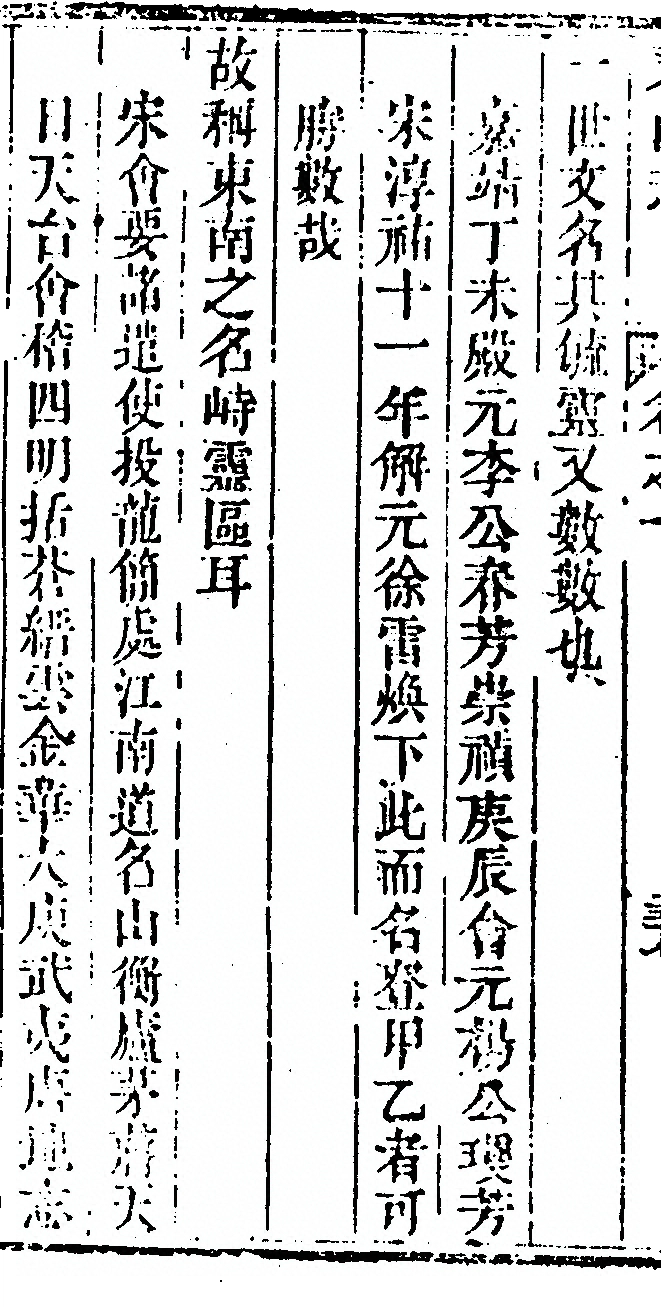 一世文名其毓靈又數數㒷
嘉靖丁未殿元李公春芳崇禎庚辰會元楊公瓊芳
宋淳祐十一年解元徐雷煥下此而名登甲乙者可
勝數哉
故稱東南之名峙靈區耳
宋會要諸遣使投龍簡處江南道名山衡廬茅蔣天
目天台會稽四明括蒼縉雲金華大庾武夷唐地志